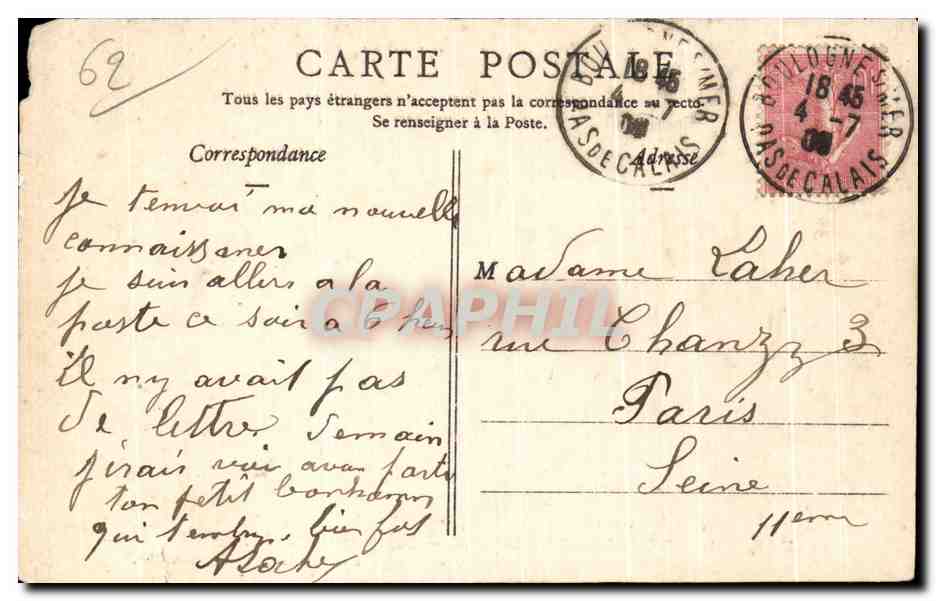 62
CARTE POSTALE
Tous les pays étrangers n'acceptent pas la correspondance au recto.
Se renseigner à la Poste.
Correspondance
Adresse
BOULOGNE S/MER
18 45
4 -7
PAS DE CALAIS
BOULOGNE S/MER
18 45
4 -7
PAS DE CALAIS
je t'envoi ma nouvelle
je suis aller a la
poste ce soir a 6 heu
il ny avait pas
de lettre demain
jirais voir avan partir
ton petit bonhomme
qui bien fos
Madame Laher
rue Chanzz 3
Paris
Seine
11eme
CPAPHIL